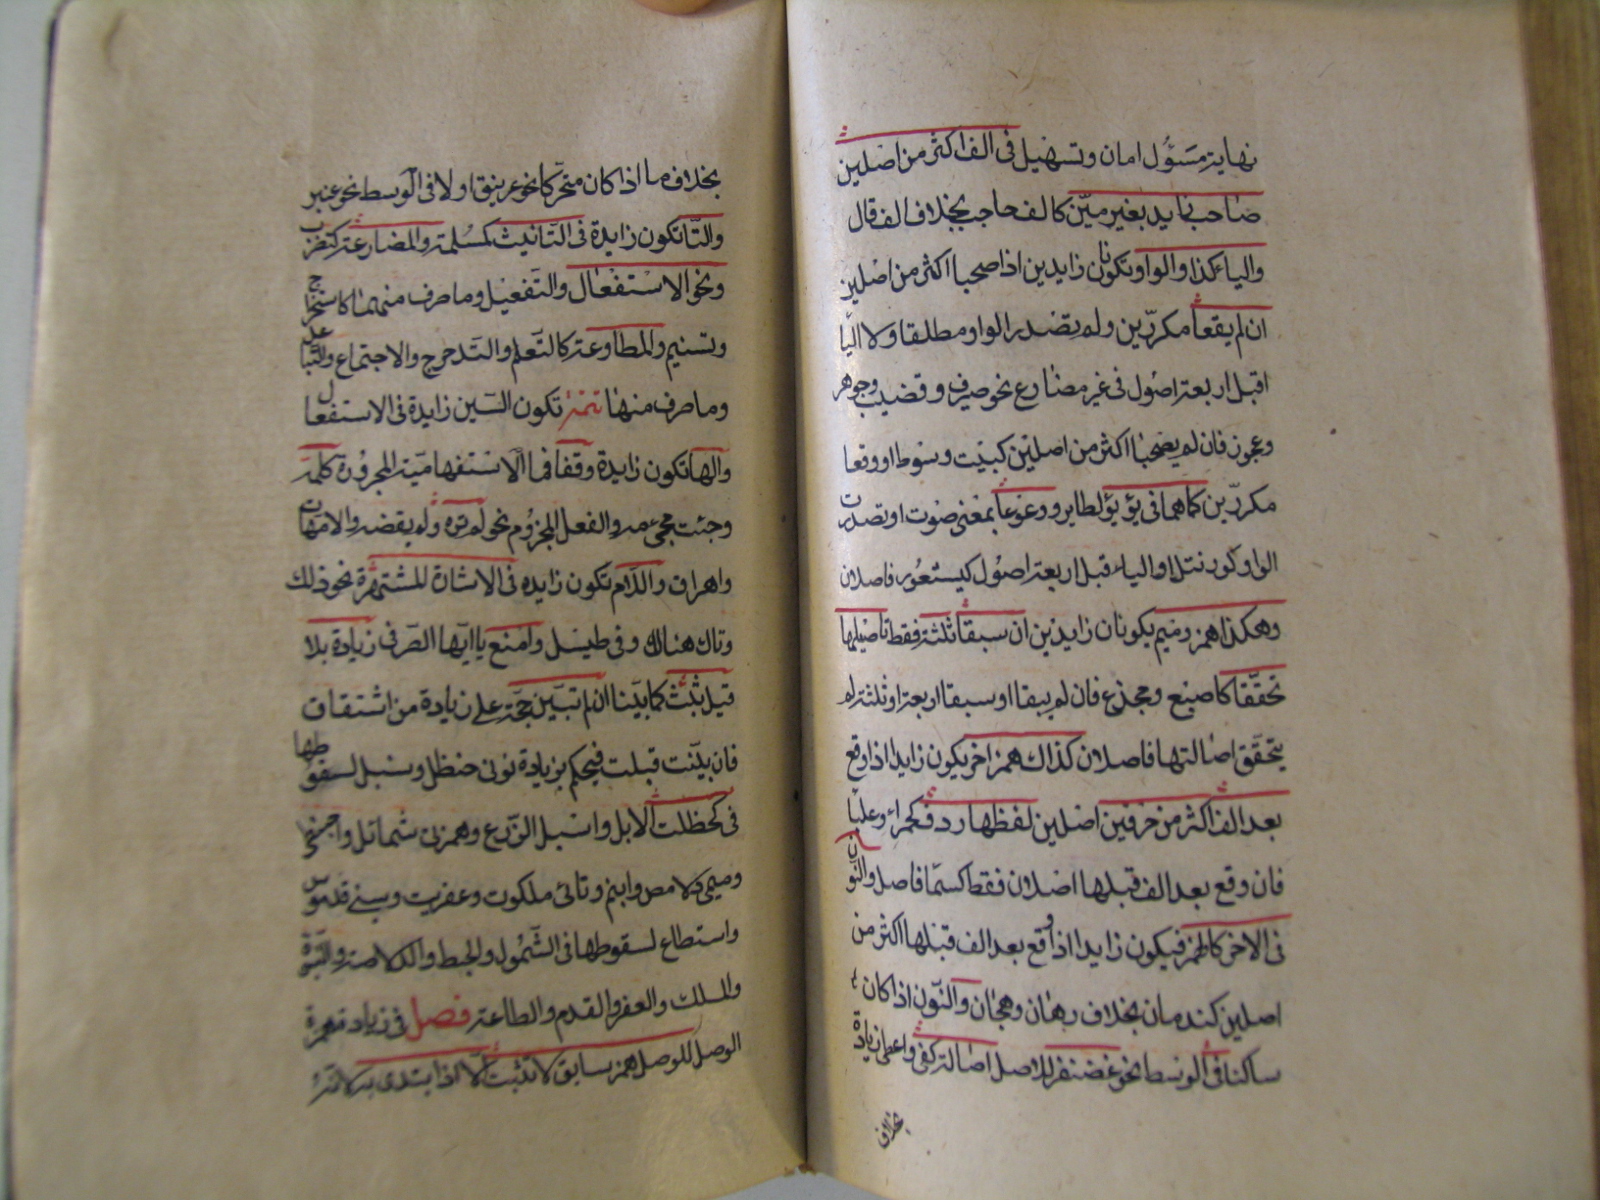 نهاية مسؤل امان وتسهيل فى الف اكثر من اصلين
صاحب زايد بغير مين كالف حاجب بخلاف الف قال
والياء كذا والواو تكونان زايدين اذا صحبا اكثر من اصلين
ان لم يقعا مكررين ولم يتصدر الواو مطلقا ولا اليا
قبل اربعة اصول فى غير مضارع نحو صيرف وقضيب وجوهر
وعجوز فان لم يصحبا اكثر من اصلين كبيت وسوط او وقعا
مكررين كما هما فى يؤيؤ لطاير ووعوعا بمعنى صوت او تصدرت
الواو كورنتل او الياء قبل اربعة اصول كيستعور فاصلان
وهكذا همز وميم يكونان زايدين ان سبقا ثلثة فقط تاصيلها
تحققا كاصبع ومجذع فان لم يسبقا او سبقا اربعة او ثلثة لم
يتحقق اصالتها فاصلان كذاك همز اخر يكون زايدا اذا وقع
بعد الف اكثر من حرفين اصلين لفظها ردف كحمراء وعلبا
فان وقع بعد الف قبلها اصلان فقط كسما فاصل والنون
فى الاخر كالهمز فيكون زايدا اذا وقع بعد الف قبلها اكثر من
اصلين كندمان بخلاف رهان وهجان والنون اذا كان
ساكنا فى الوسط نحو غضنفر للاصل اصالة كفى واعطى زيادة
بخلاف
بخلاف ما اذا كان متحركا نحو غرنيق اولا فى الوسط نحو عنبر
والتا تكون زايدة فى التانيث كمسلمة والمضارعة كتضرب
ونحو الاستفعال والتفعيل وما صرف منهما كاستخراج
وتسنيم والمطاوعة كالتعلم والتدحرج والاجتماع والتباعد
وما صرف منها تتمة تكون السين زايدة فى الاستفعال
والها تكون زايدة وقفا فما الاستفهامية المجرورة كلمه
وجئت مجئ مه والفعل المجزوم نحو لم تره ولم يقضه والامهات
واهراق واللام تكون زايدة فى الاشارة المشتهرة نحو ذلك
وتلك هنالك وفى طيسل وامنع يا ايها الصرفى زيادة بلا
قيل ثبت كما بينا ان لم تبين حجة على زيادة من اشتقاق
فان بينت قبلت فيحكم بزيادة نونى حنظل وسنبل لسقوطها
فى كحظلت الابل واسبل الزرع وهمزتى شمائل واحبنطا
وميمى دلامص وابنم وتائى ملكوت وعفريت وسينى قدموس
واستطاع لسقوطها فى الشمول والحبط والدلاصة والبنوة
والملك والعفر والقدم والطاعة فصل فى زيادة همزة
الوصل للوصل همز سابق لا تثبت الا اذا ابتدى به